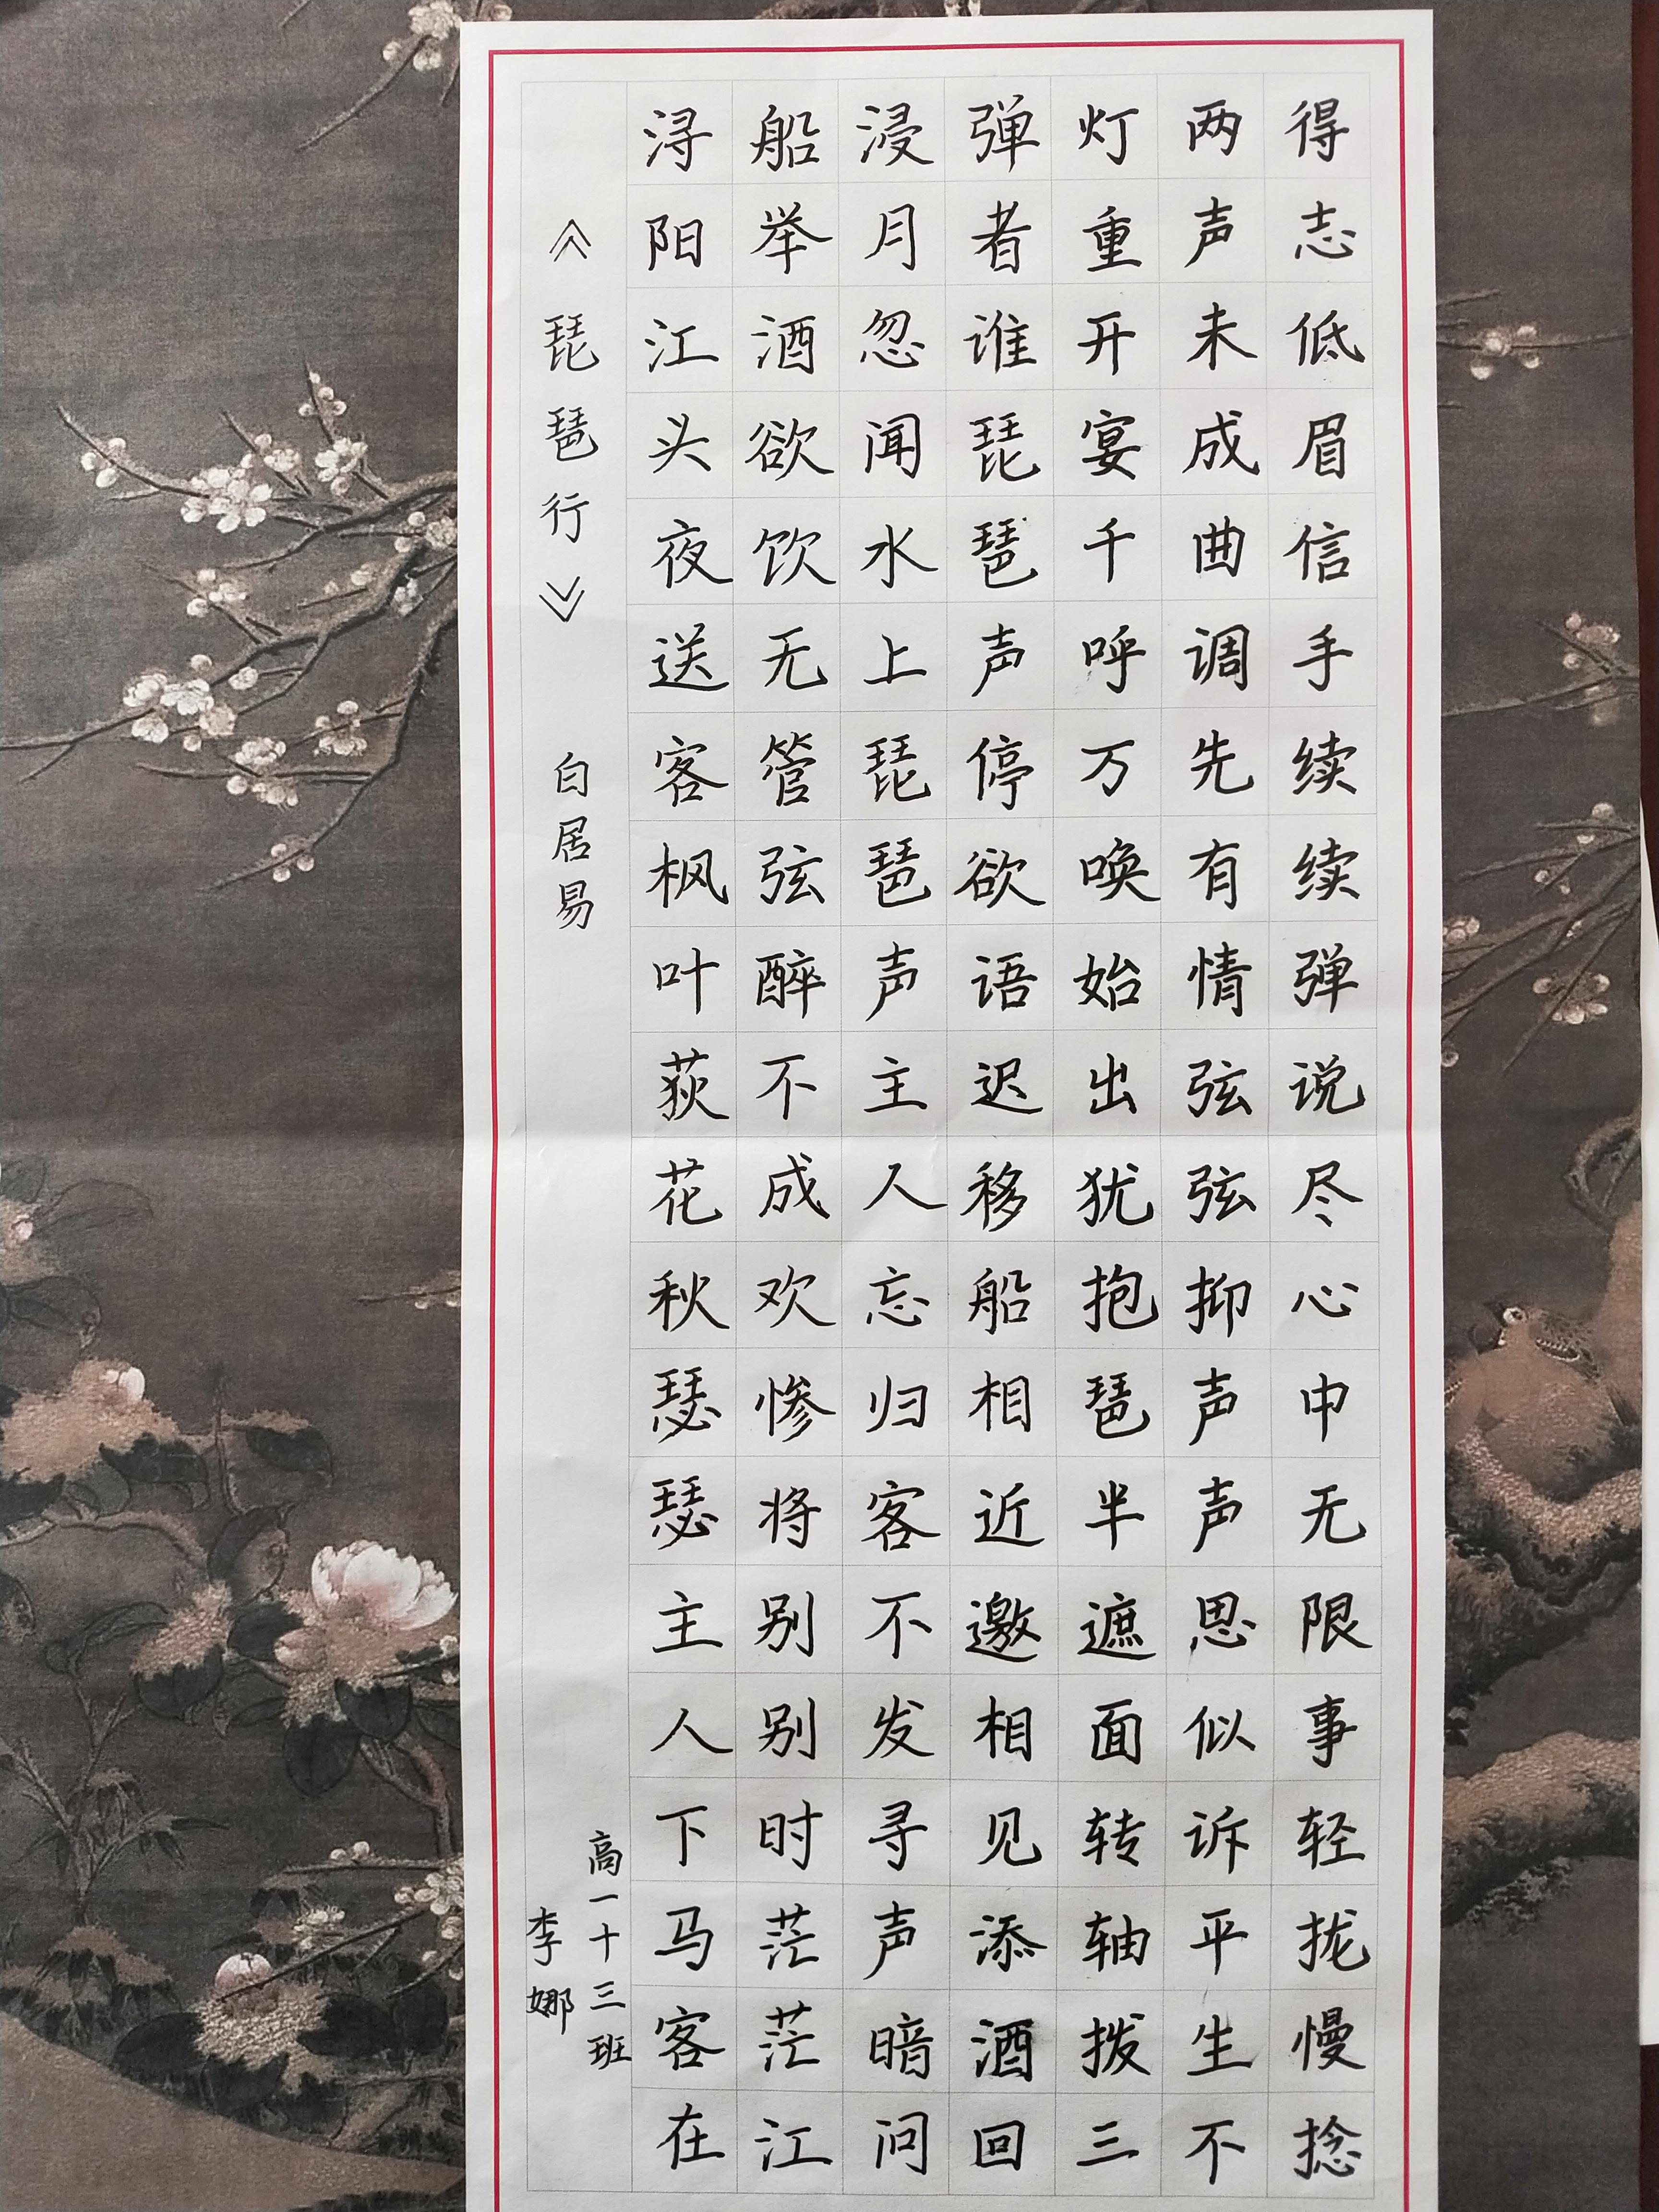 《琵琶行》
白居易
浔阳江头夜送客枫叶荻花秋瑟瑟主人下马客在
船举酒欲饮无管弦醉不成欢惨将别别时茫茫江
浸月忽闻水上琵琶声主人忘归客不发寻声暗问
弹者谁琵琶声停欲语迟移船相近邀相见添酒回
灯重开宴千呼万唤始出犹抱琶半遮面转轴拨三
两声未成曲调先有情弦弦抑声声思似诉平生不
得志低眉信手续续弹说尽心中无限事轻拢慢捻
高一十三班
李娜